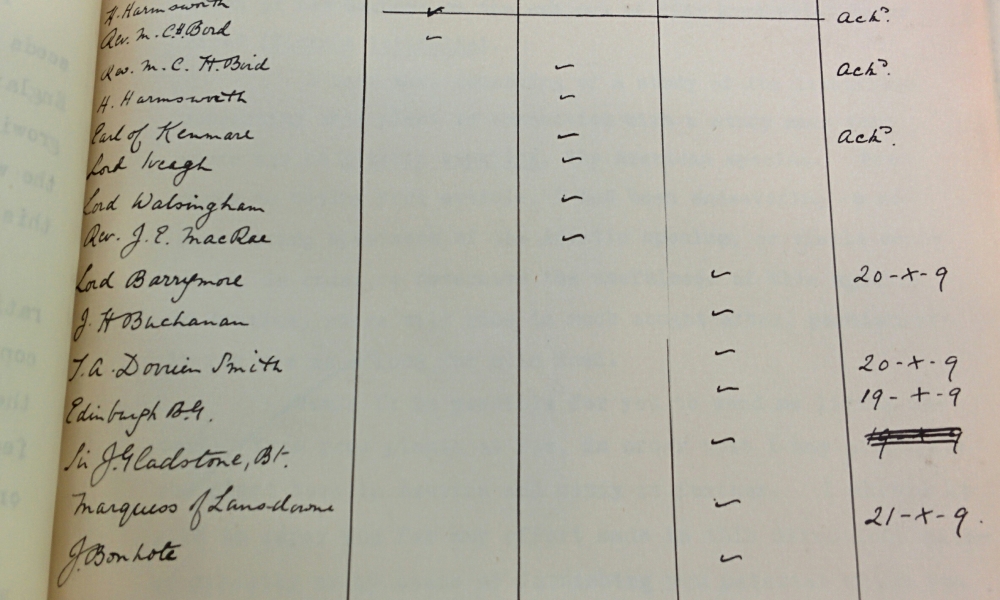 H. Harmsworth ✓ Ackd.
Rev. M. C. H. Bird ✓
Rev. M. C. H. Bird ✓ Ackd.
H. Harmsworth ✓
Earl of Kenmare ✓ Ackd.
Lord Iveagh ✓
Lord Walsingham ✓
Rev. J. E. MacRae ✓
Lord Barrymore ✓ 20-x-9
J. H Buchanan ✓
T. A. Dorrien Smith ✓ 20-x-9
Edinburgh B.G. ✓ 19-x-9
Sir J. Gladstone, Bt. ✓
Marquess of Lansdowne ✓ 21-x-9.
J. Bonhote ✓